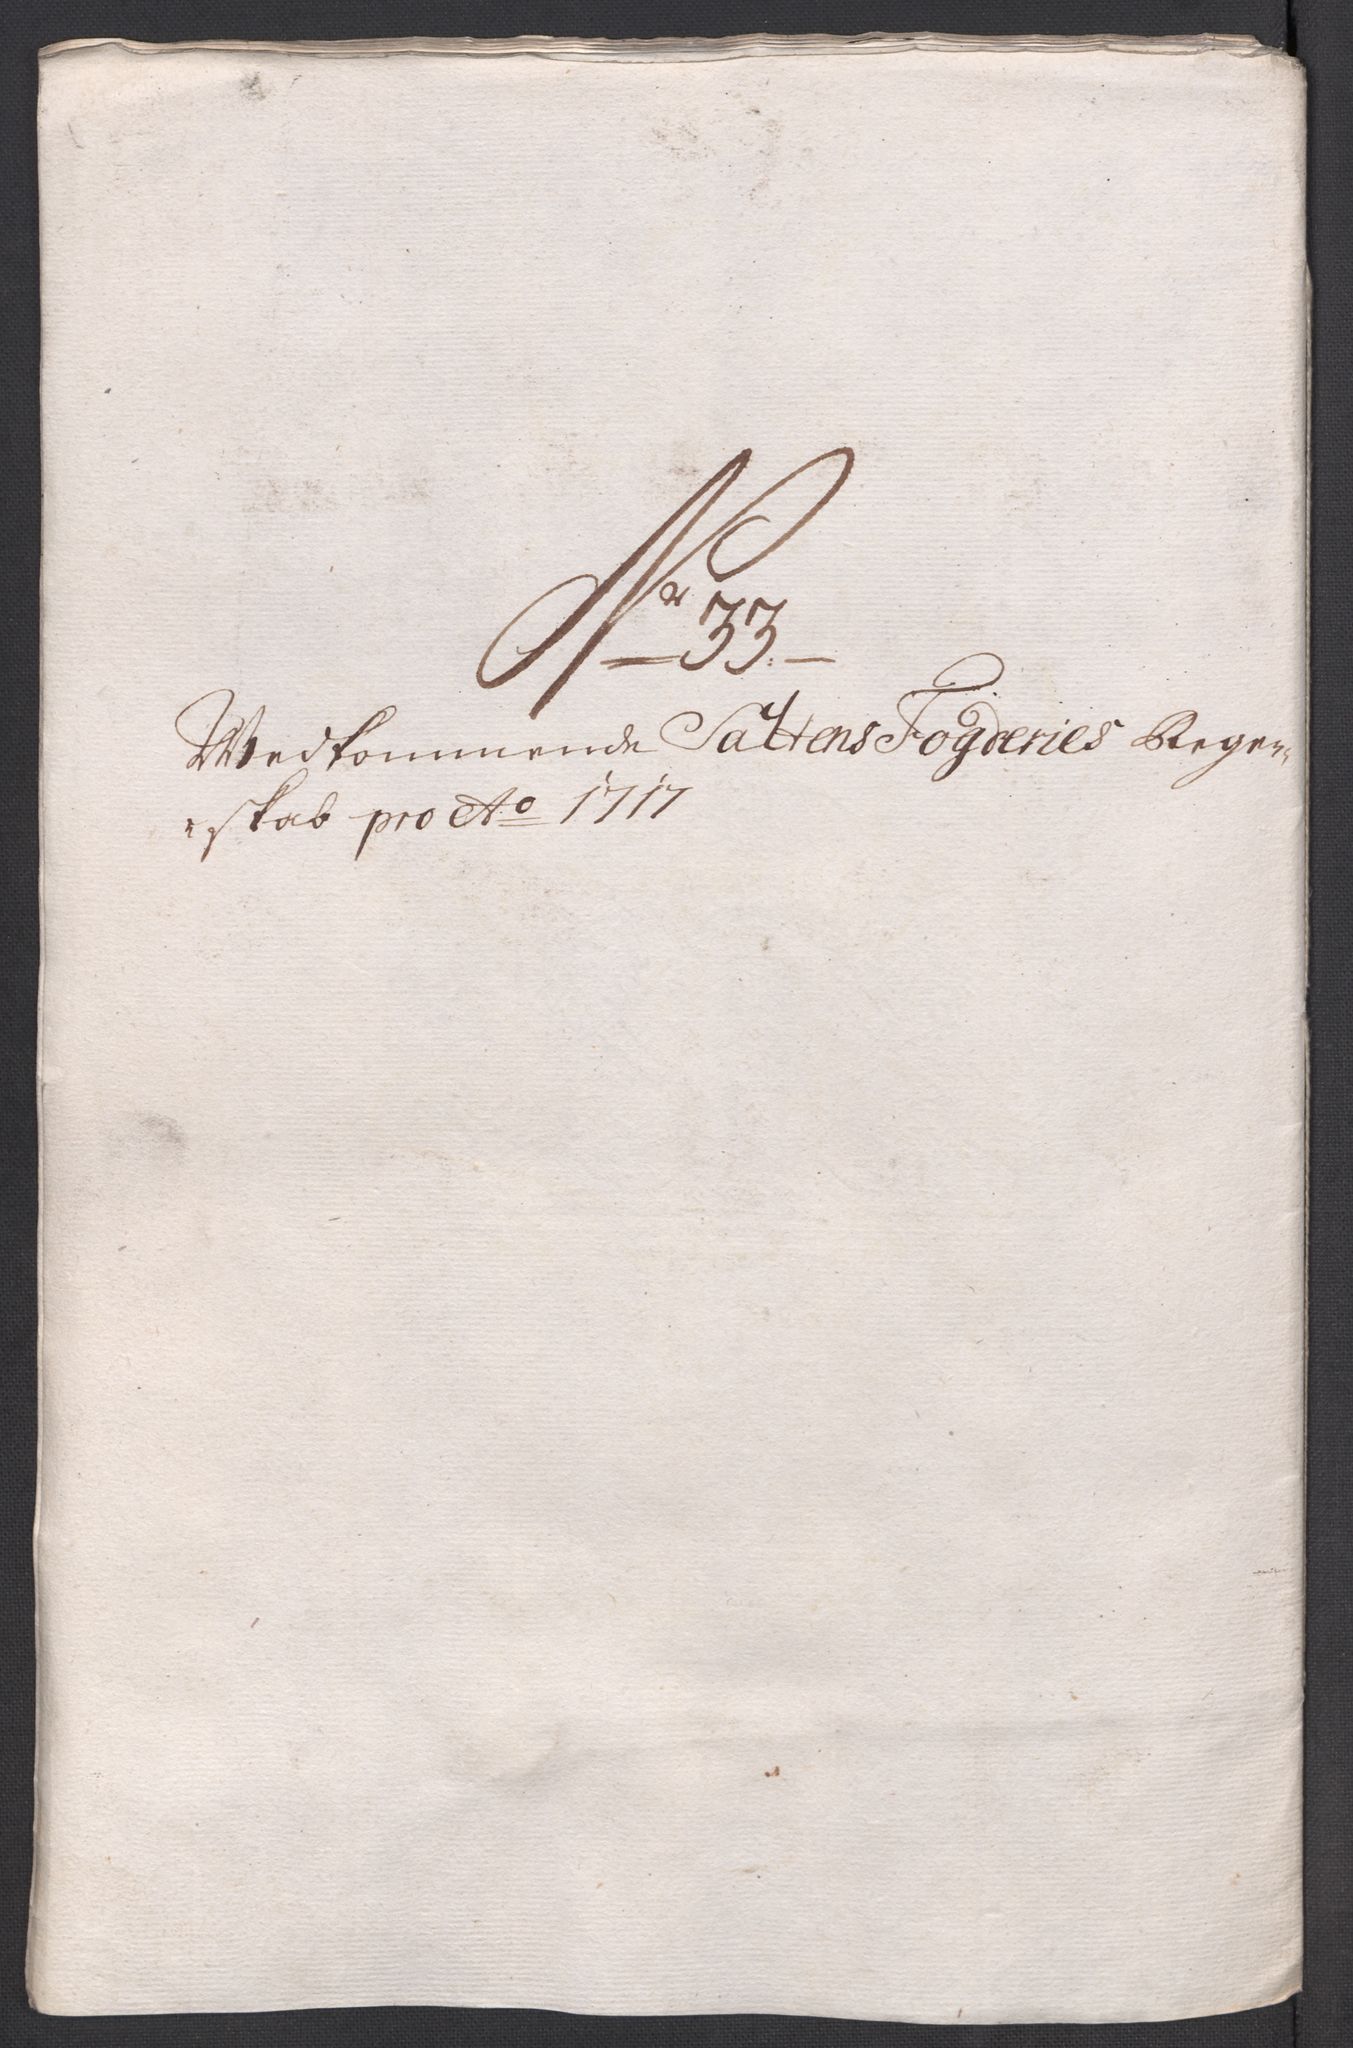 Nr 33.
Wedkommende Saltens Fogderies Regen-
skab pro Ao 1717